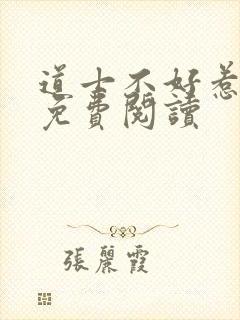 道士不好惹
免費閱讀
張麗霞